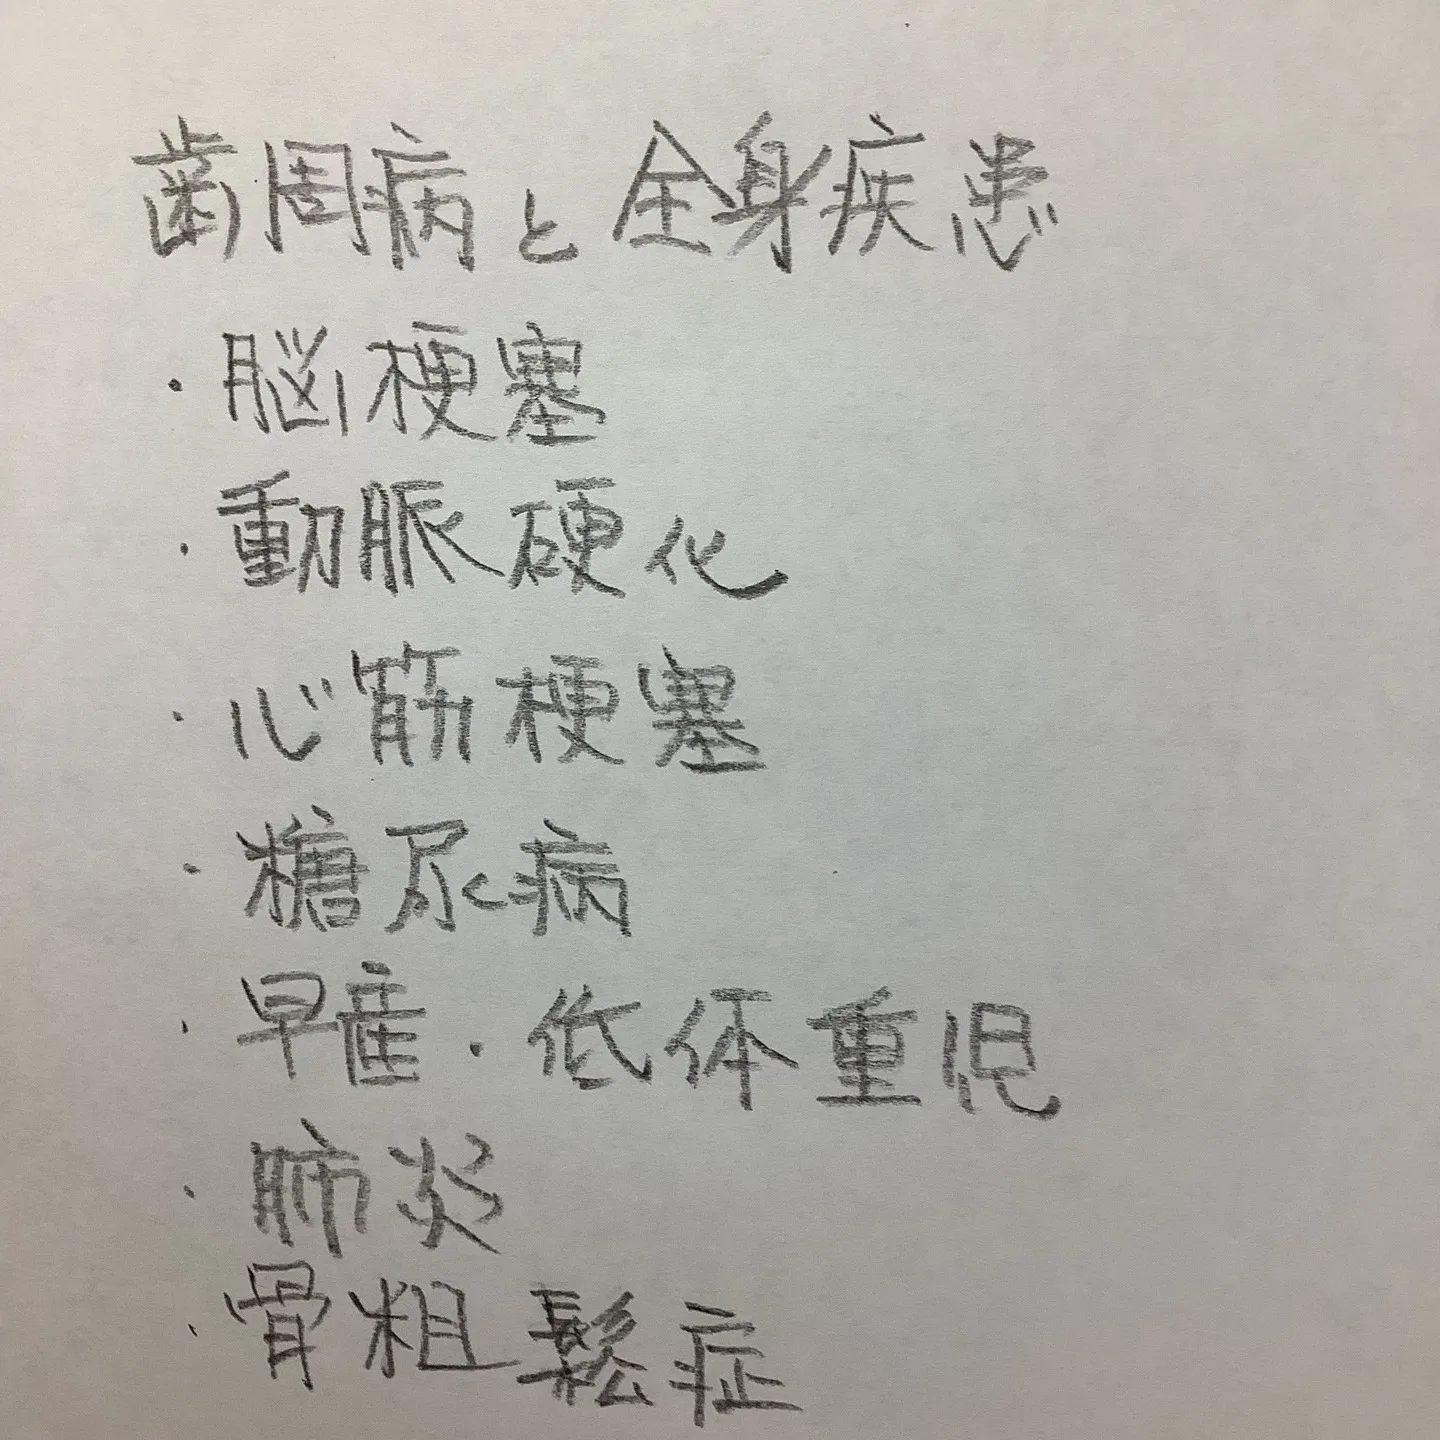 歯周病と全身疾患
・脳梗塞
・動脈硬化
・心筋梗塞
・糖尿病
・早産・低体重児
・肺炎
・骨粗鬆症